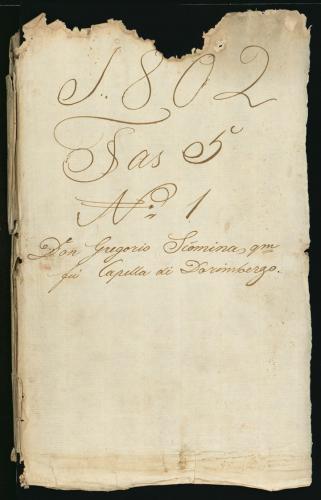 1802
Fas 5
No. 1
Don Gregorio Scomina, qm
fù Capella di Dorimbergo.